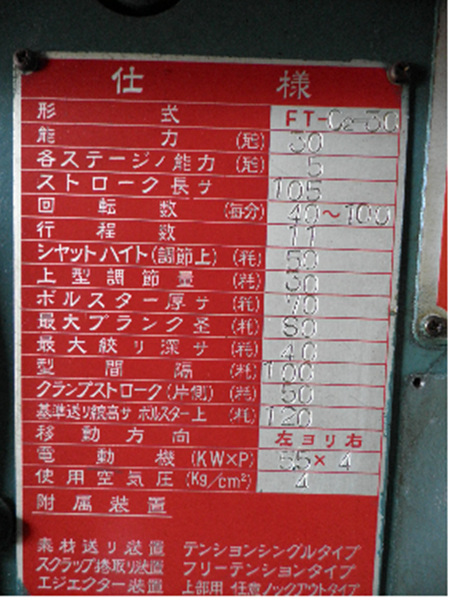 仕様
形式 FT-C2-30
能力 (瓲) 30
各ステージノ能力 (瓲) 5
ストローク長サ 105
回転数 (毎分) 40～100
行程数 11
シヤットハイト(調節上) (粍) 50
上型調節量 (粍) 30
ボルスター厚サ (粍) 70
最大ブランク圣 (粍) 80
最大絞リ深サ (粍) 40
型間隔 (粍) 100
クランプストローク(片側) (粍) 50
基準送リ線高サ ボルスター上 (粍) 120
移動方向 左ヨリ右
電動機 (KW×P) 5.5×4
使用空気圧 (Kg/cm²) 4
附属装置
素材送リ装置 テンションシングルタイプ
スクラップ捲取リ装置 フリーテンションタイプ
エジエクター装置 上部用 任意ノックアウトタイプ